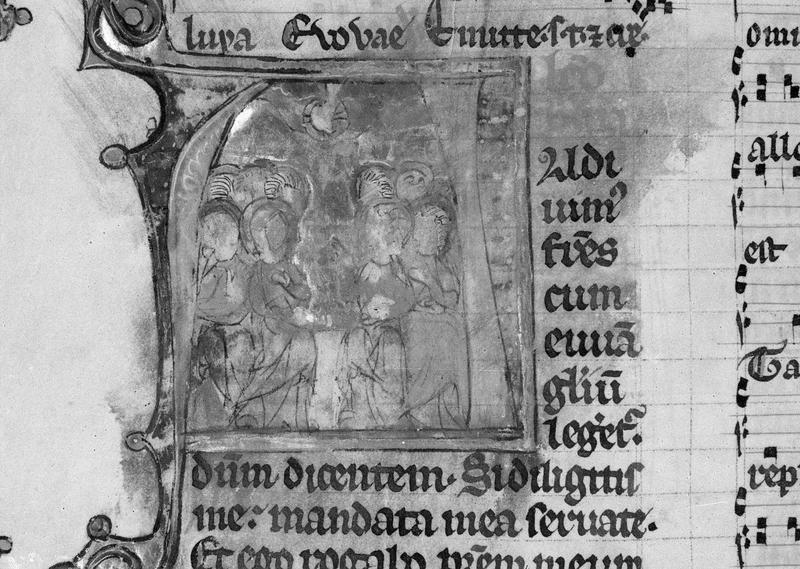 luya Evovae Emitte
Aldi
uim᾽
fr̄es
cum
euuā
gliū
leget᷑.
dn̄m dicentem. Si diligitis
me: mandata mea seruate.
Et ego rogabo pr̄em meum
omi
alle
est
Ga
rep